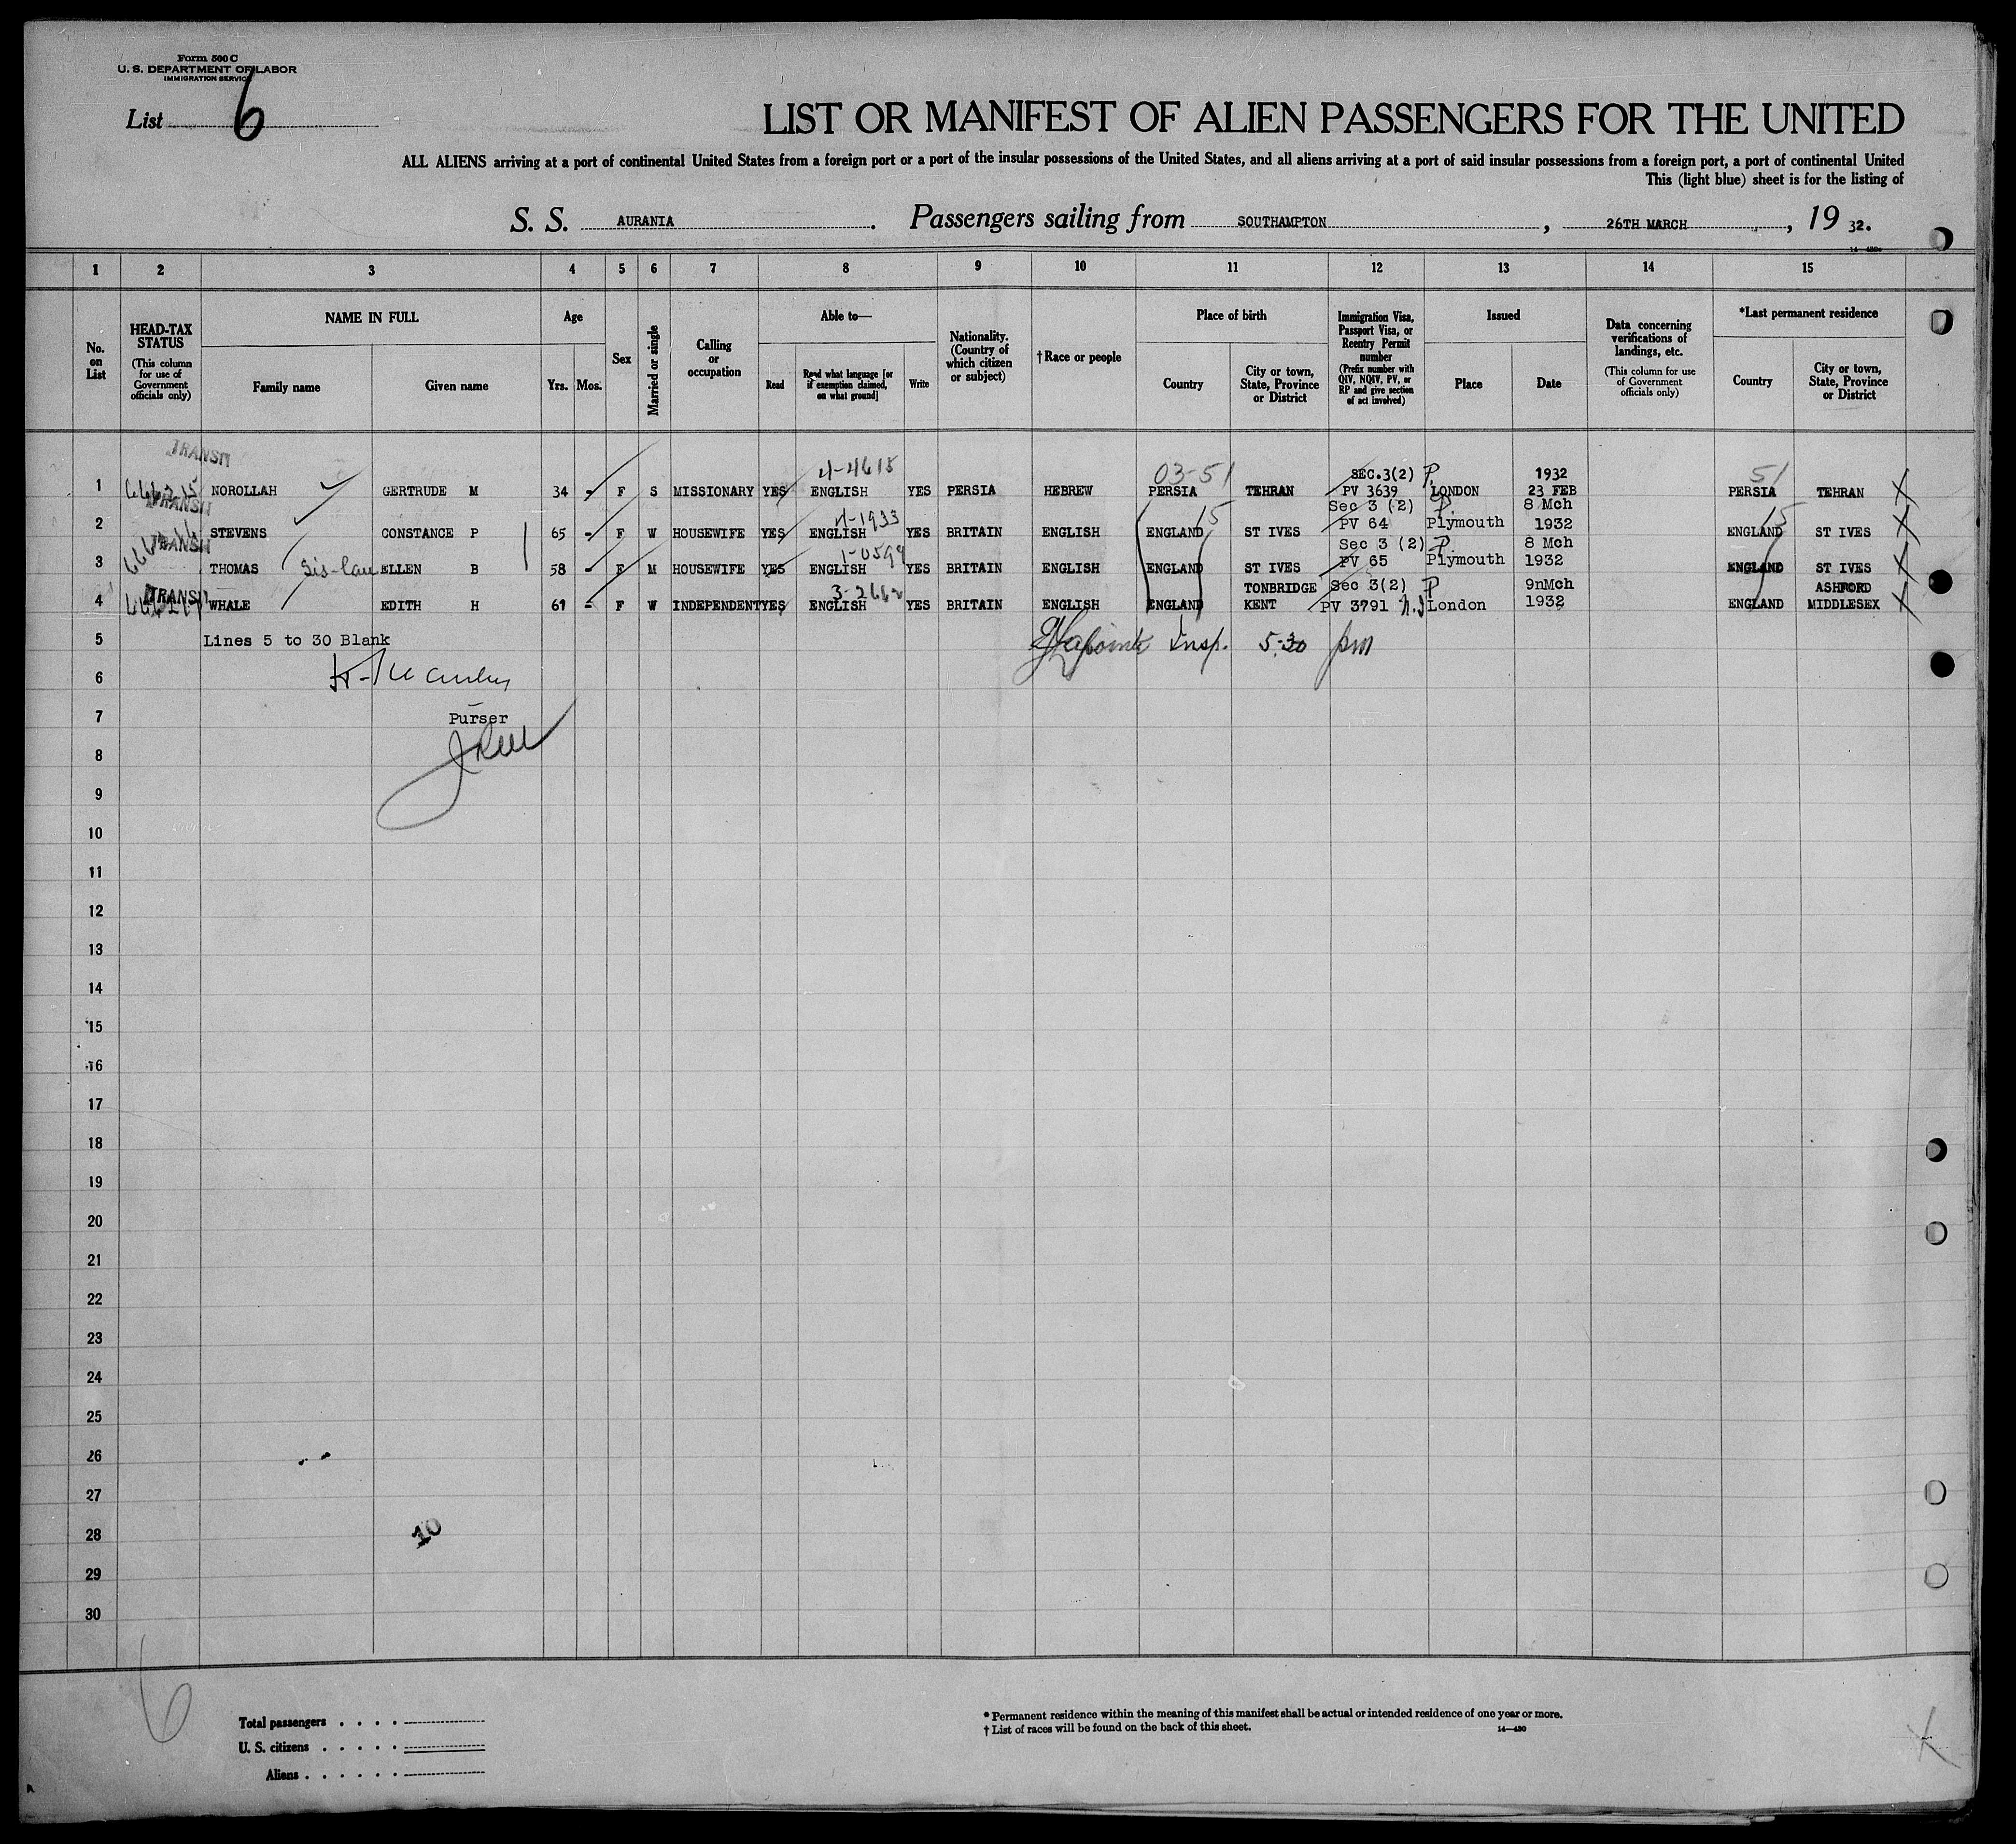 Form 500 C
U. S. DEPARTMENT OF LABOR
IMMIGRATION SERVICE
List 6
LIST OR MANIFEST OF ALIEN PASSENGERS FOR THE UNITED
ALL ALIENS arriving at a port of continental United States from a foreign port or a port of the insular possessions of the United States, and all aliens arriving at a port of said insular possessions from a foreign port, a port of continental United
This (light blue) sheet is for the listing of
S. S. AURANIA. Passengers sailing from SOUTHAMPTON, 26TH MARCH, 19 32.
1 2 3 4 5 6 7 8 9 10 11 12 13 14 15
No. on List
HEAD-TAX STATUS (This column for use of Government officials only)
NAME IN FULL
Family name Given name
Age
Yrs. Mos.
Sex
Married or single
Calling or occupation
Able to—
Read Read what language [or if exemption claimed, on what ground] Write
Nationality. (Country of which citizen or subject)
† Race or people
Place of birth
Country City or town, State, Province or District
Immigration Visa, Passport Visa, or Reentry Permit number (Prefix number with QIV, NQIV, PV, or RP and give section of act involved)
Issued
Place Date
Data concerning verifications of landings, etc. (This column for use of Government officials only)
*Last permanent residence
Country City or town, State, Province or District
TRANSIT 4-4615 03-51 SEC.3(2) P. 1932 51
1 NOROLLAH GERTRUDE M 34 - F S MISSIONARY YES ENGLISH YES PERSIA HEBREW PERSIA TEHRAN PV 3639 LONDON 23 FEB PERSIA TEHRAN X
TRANSIT 4-1933 15 Sec 3 (2) P. 8 Mch 15
2 STEVENS CONSTANCE P 65 - F W HOUSEWIFE YES ENGLISH YES BRITAIN ENGLISH ENGLAND ST IVES PV 64 Plymouth 1932 ENGLAND ST IVES X
TRANSIT Sec 3 (2) P. 8 Mch
3 THOMAS Sis-law ELLEN B 58 - F M HOUSEWIFE YES ENGLISH YES BRITAIN ENGLISH ENGLAND ST IVES PV 65 Plymouth 1932 ENGLAND ST IVES X
TRANSIT TONBRIDGE Sec 3(2) P 9nMch ASHFORD
4 WHALE EDITH H 61 - F W INDEPENDENT YES ENGLISH YES BRITAIN ENGLISH ENGLAND KENT PV 3791 London 1932 ENGLAND MIDDLESEX X
5 Lines 5 to 30 Blank Insp. 5:30 pm
6
7 Purser
8
9
10
11
12
13
14
15
16
17
18
19
20
21
22
23
24
25
26
27
28 10
29
30
6
Total passengers . . . .
U. S. citizens . . . . .
Aliens . . . . . .
* Permanent residence within the meaning of this manifest shall be actual or intended residence of one year or more.
† List of races will be found on the back of this sheet. 14—480